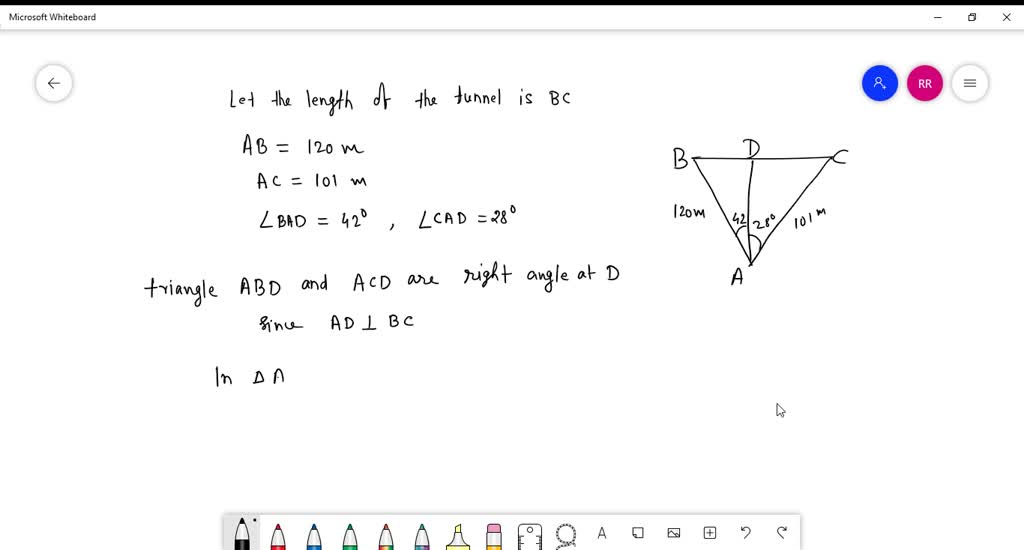 Microsoft Whiteboard
RR
Let the length of the tunnel is BC
AB = 120 m
AC = 101 m
∠BAD = 42°, ∠CAD = 28°
triangle ABD and ACD are right angle at D
since AD ⊥ BC
In Δ A
B D C
120m 42 28° 101 m
A
A